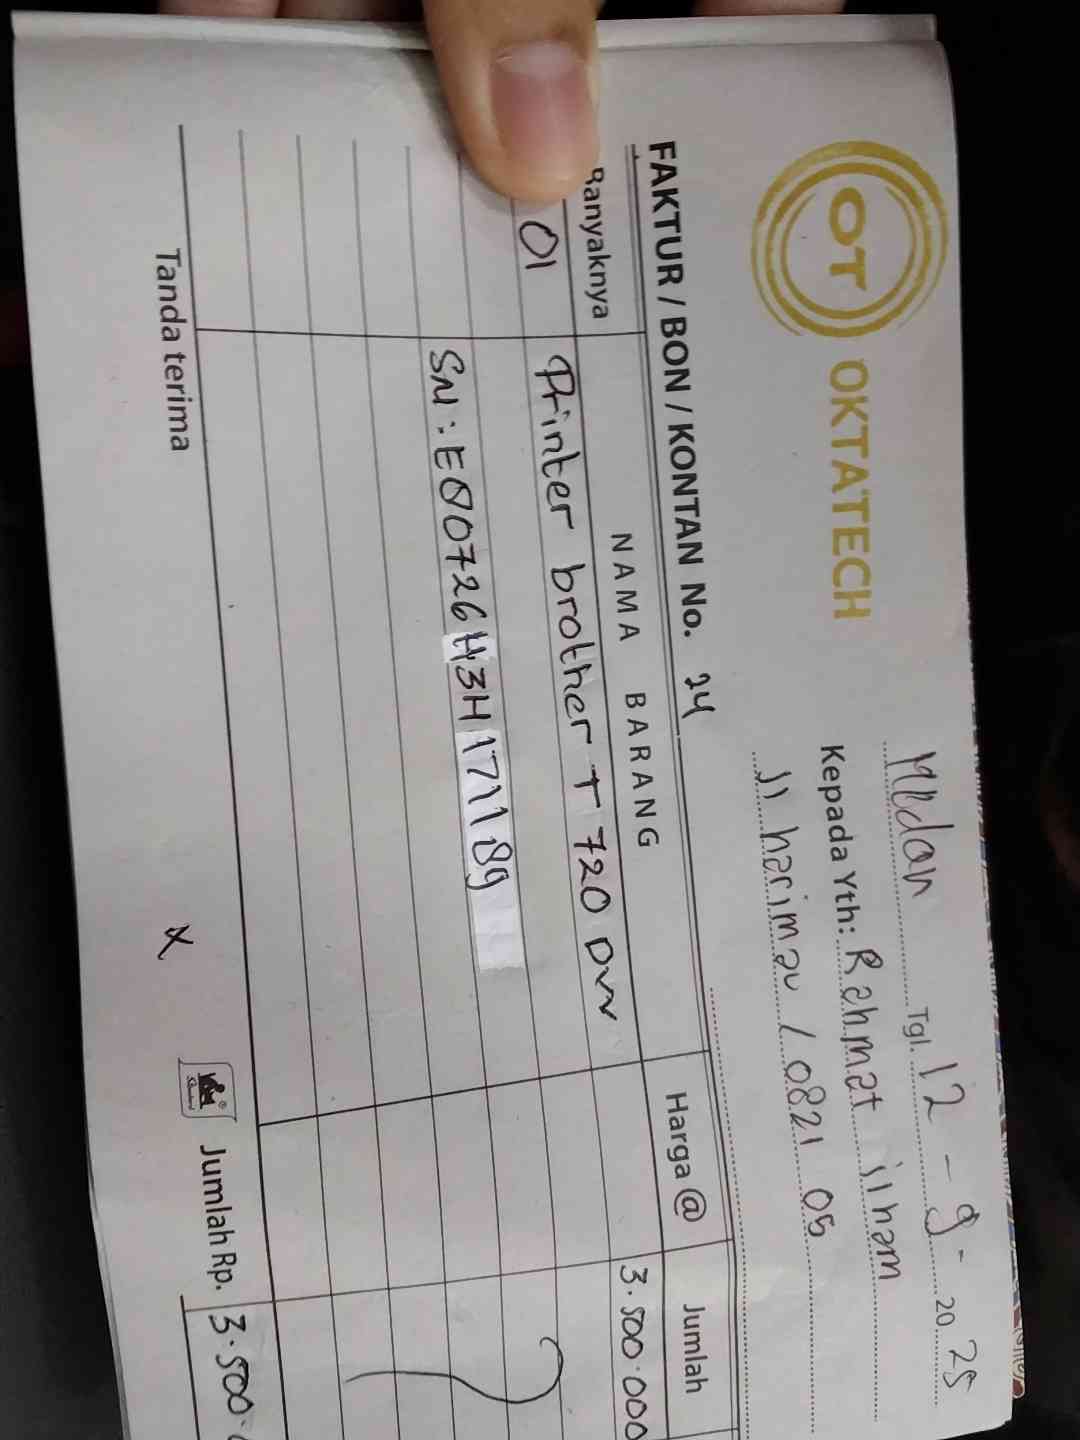 OT OKTATECH
Medan Tgl. 12 - 9 - 2025
Kepada Yth: Rahmat ilham
Jl harimau / 0821 05
FAKTUR / BON / KONTAN No. 24
Banyaknya NAMA BARANG Harga @ Jumlah
01 Printer brother T 720 DW 3.500.000
SN: E80726H3H171189
Tanda terima x Jumlah Rp. 3.500.